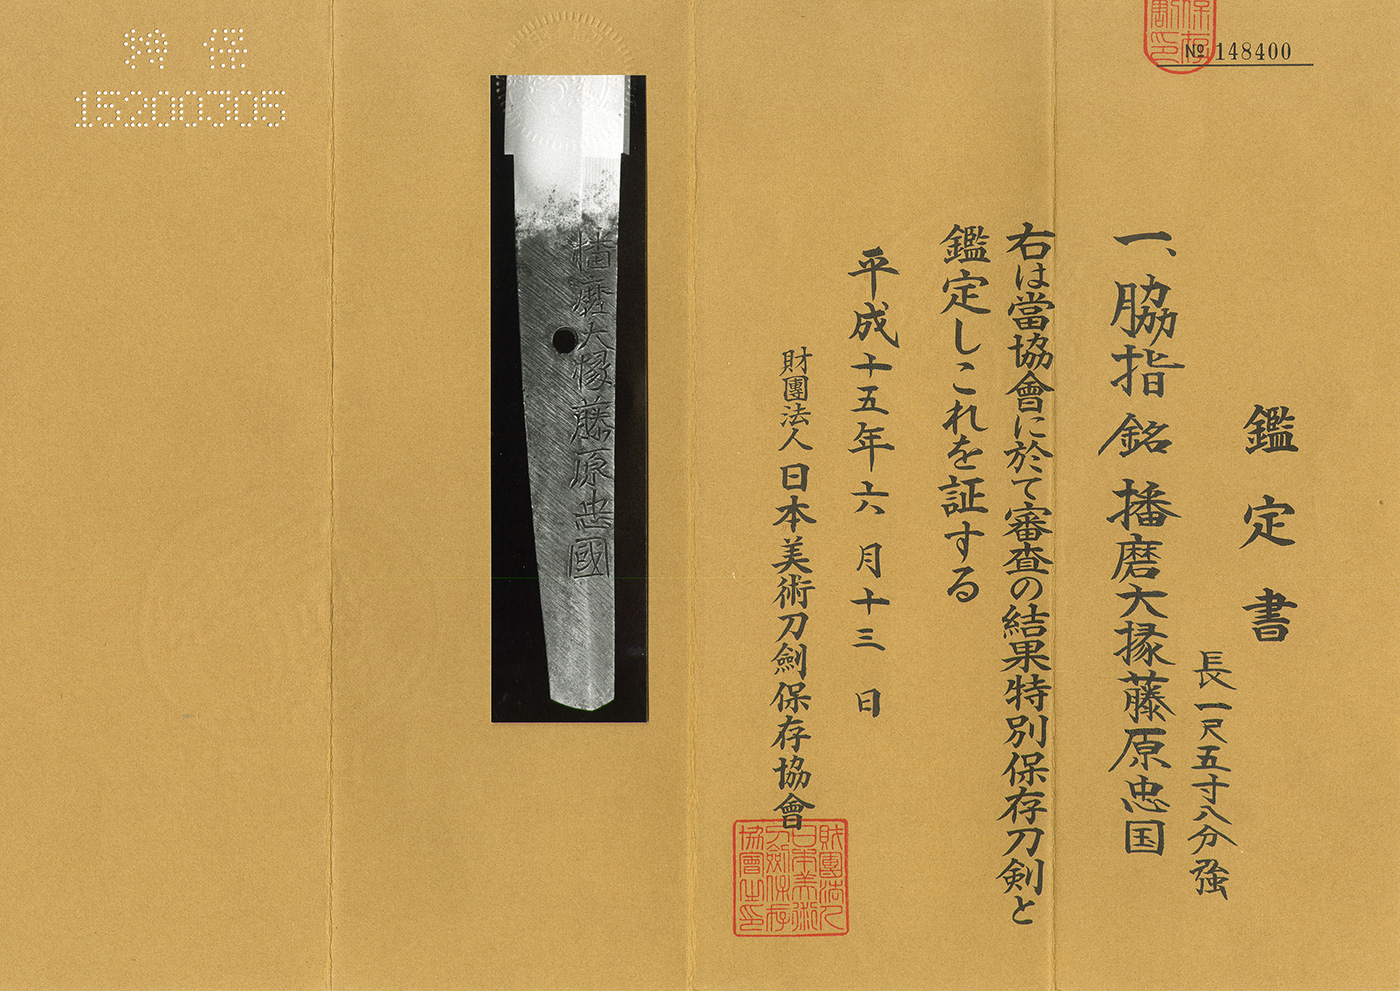 鑑定書
長一尺五寸八分強
一、脇指 銘 播磨大掾藤原忠国
右は當協會に於て審査の結果特別保存刀剣と
鑑定しこれを証する
平成十五年六月十三日
財團法人 日本美術刀劍保存協會
財團法人
日本美術
刀劍保存
協會之印
№ 148400
保存
播磨大掾藤原忠國
特保
15200305